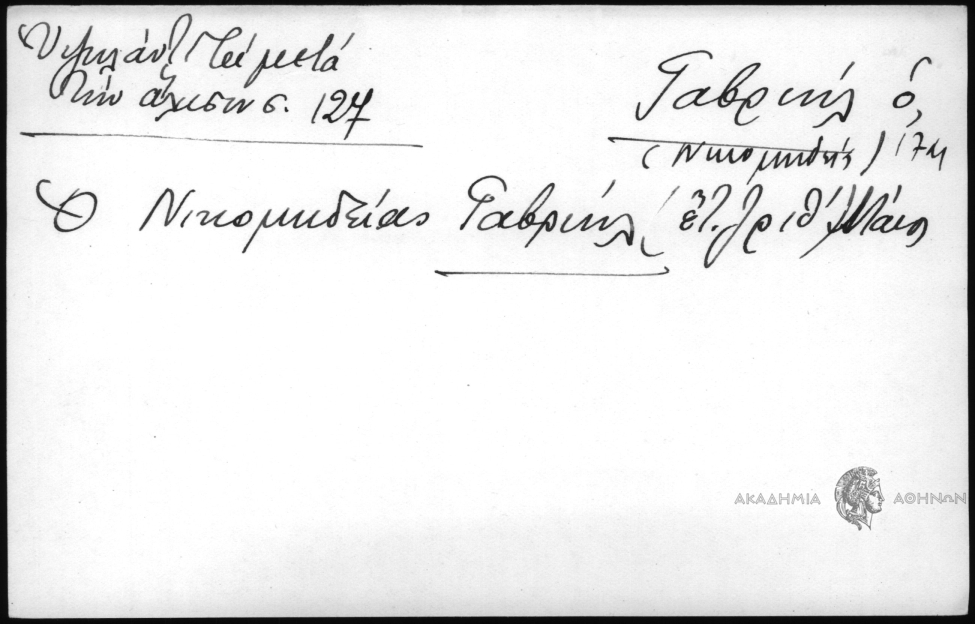 Ὑψηλάντ. Τὰ μετὰ
τὴν ἅλωσιν σ. 127
Γαβριήλ ὁ,
(Νικομηδείς) 17
Ὁ Νικομηδείας Γαβριήλ, Μάιο
ΑΚΑΔΗΜΙΑ ΑΘΗΝΩΝ